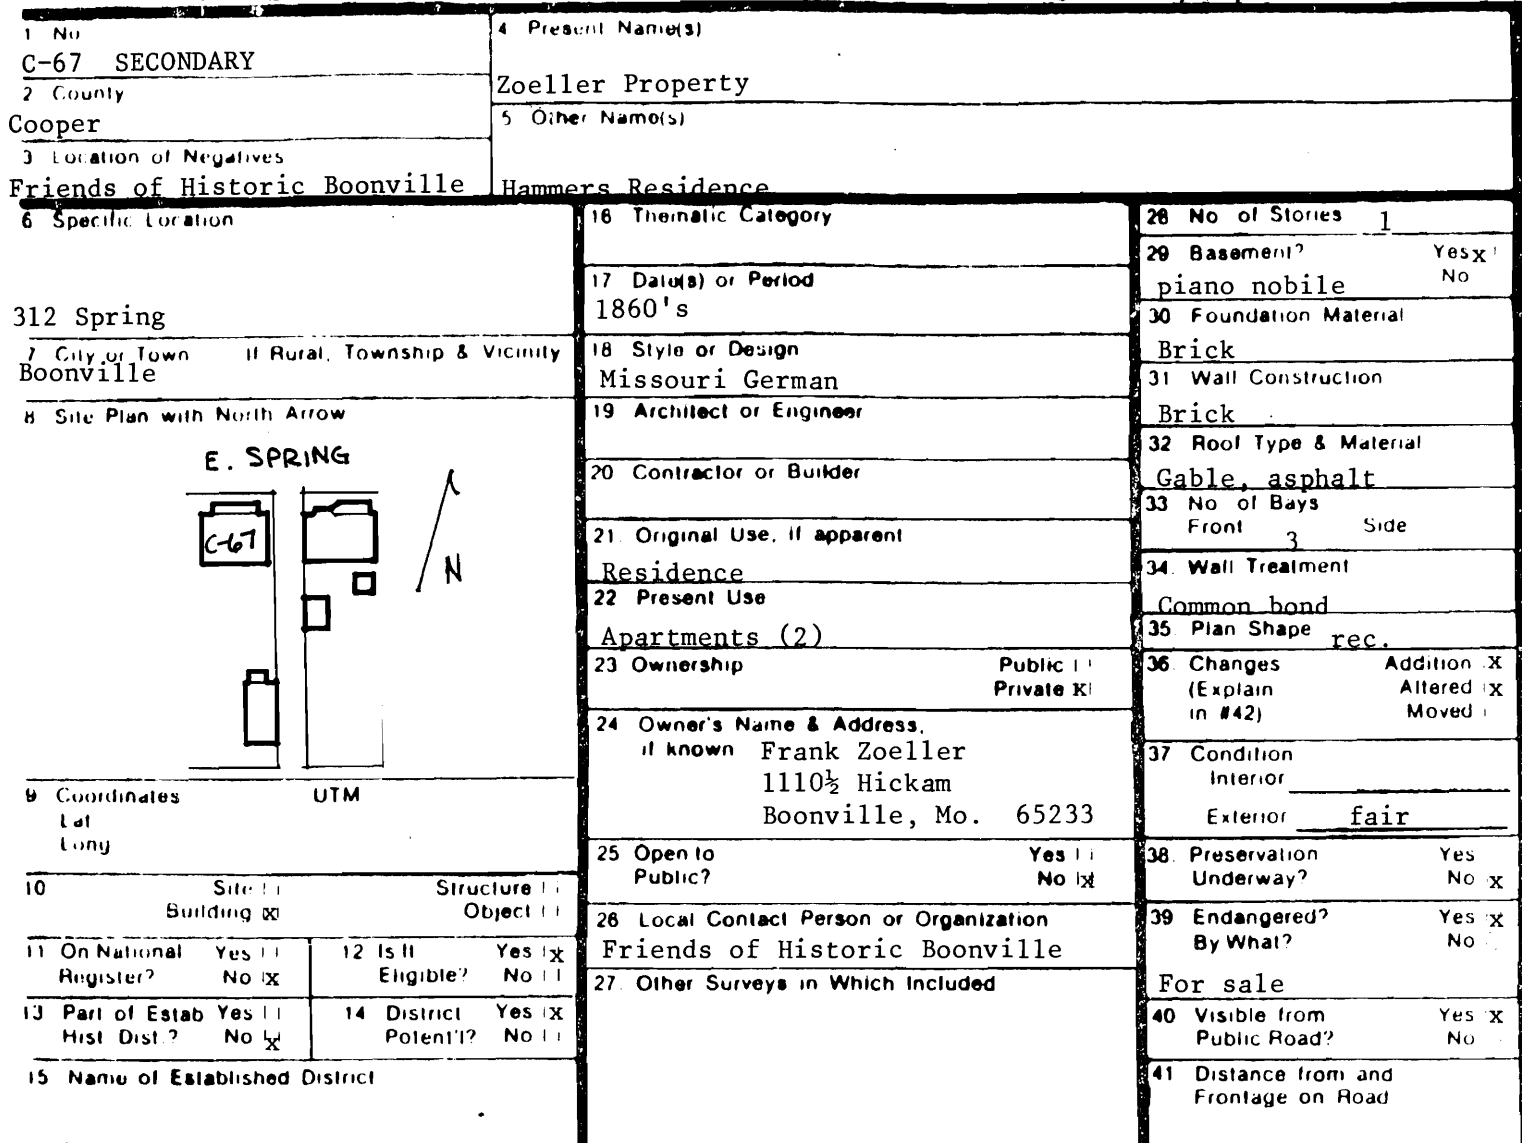 1 No
C-67 SECONDARY
2 County
Cooper
3 Location of Negatives
Friends of Historic Boonville
4 Present Name(s)
Zoeller Property
5 Other Name(s)
Hammers Residence
6 Specific Location
312 Spring
7 City or Town If Rural, Township & Vicinity
Boonville
8 Site Plan with North Arrow
E. SPRING
C-67
N
9 Coordinates UTM
Lat
Long
10 Site Structure
Building X Object
11 On National Yes
Register? No X
12 Is It Yes X
Eligible? No
13 Part of Estab Yes
Hist Dist.? No X
14 District Yes X
Potent'l? No
15 Name of Established District
16 Thematic Category
17 Date(s) or Period
1860's
18 Style or Design
Missouri German
19 Architect or Engineer
20 Contractor or Builder
21. Original Use, if apparent
Residence
22 Present Use
Apartments (2)
23 Ownership Public
Private X
24 Owner's Name & Address,
if known Frank Zoeller
1110½ Hickam
Boonville, Mo. 65233
25 Open to Yes
Public? No X
26 Local Contact Person or Organization
Friends of Historic Boonville
27. Other Surveys in Which Included
28 No of Stories 1
29 Basement? Yes x
No
piano nobile
30 Foundation Material
Brick
31 Wall Construction
Brick
32 Roof Type & Material
Gable, asphalt
33 No of Bays
Front 3 Side
34. Wall Treatment
Common bond
35 Plan Shape rec.
36 Changes Addition X
(Explain Altered X
in #42) Moved
37 Condition
Interior
Exterior fair
38. Preservation Yes
Underway? No X
39 Endangered? Yes X
By What? No
For sale
40 Visible from Yes X
Public Road? No
41 Distance from and
Frontage on Road